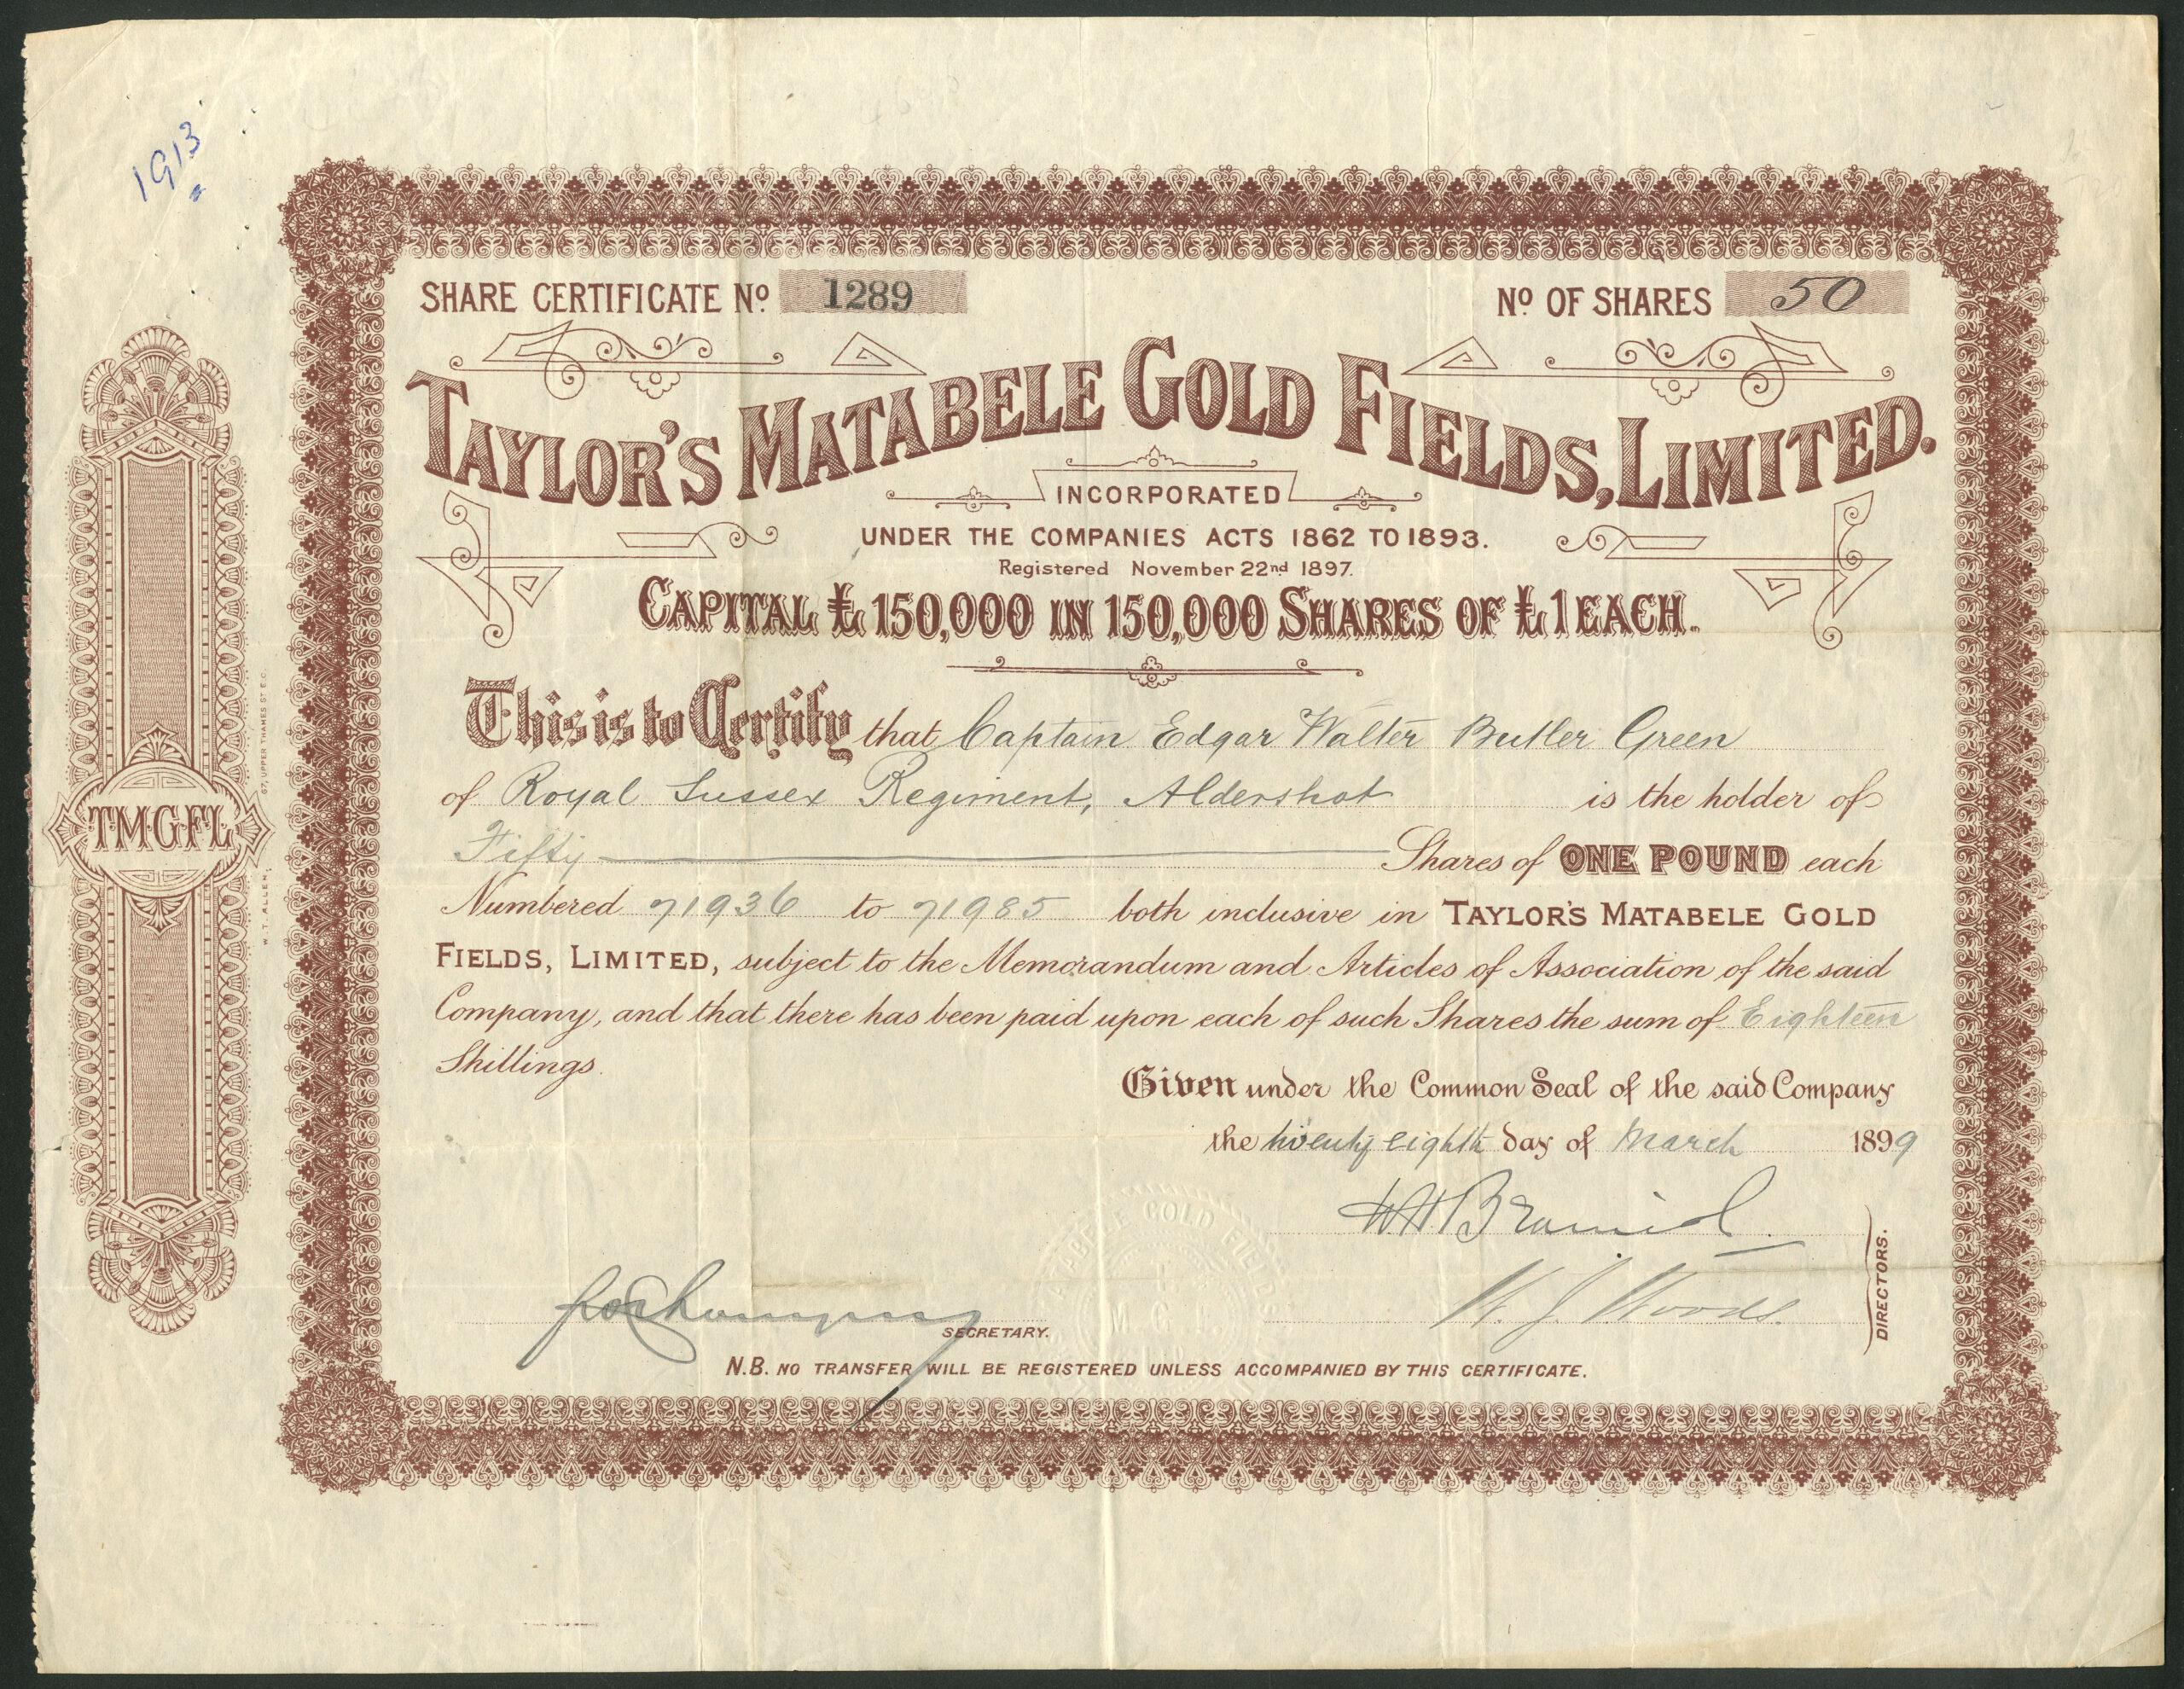 1913
SHARE CERTIFICATE Nº 1289
Nº OF SHARES 50
TAYLOR'S MATABELE GOLD FIELDS, LIMITED.
INCORPORATED
UNDER THE COMPANIES ACTS 1862 TO 1893.
Registered November 22nd 1897.
CAPITAL £150,000 IN 150,000 SHARES OF £1 EACH.
This is to Certify that Captain Edgar Walter Butler Green
of Royal Sussex Regiment, Aldershot is the holder of
Fifty Shares of ONE POUND each
Numbered 71936 to 71985 both inclusive in TAYLOR'S MATABELE GOLD
FIELDS, LIMITED, subject to the Memorandum and Articles of Association of the said
Company, and that there has been paid upon each of such Shares the sum of Eighteen
Shillings.
Given under the Common Seal of the said Company
the twenty eighth day of March 1899
W. J. Woods.
DIRECTORS.
SECRETARY.
N.B. NO TRANSFER WILL BE REGISTERED UNLESS ACCOMPANIED BY THIS CERTIFICATE.
TMGFL
W. T. ALLEN, 67, UPPER THAMES ST E.C.
MATABELE GOLD FIELDS
M G F